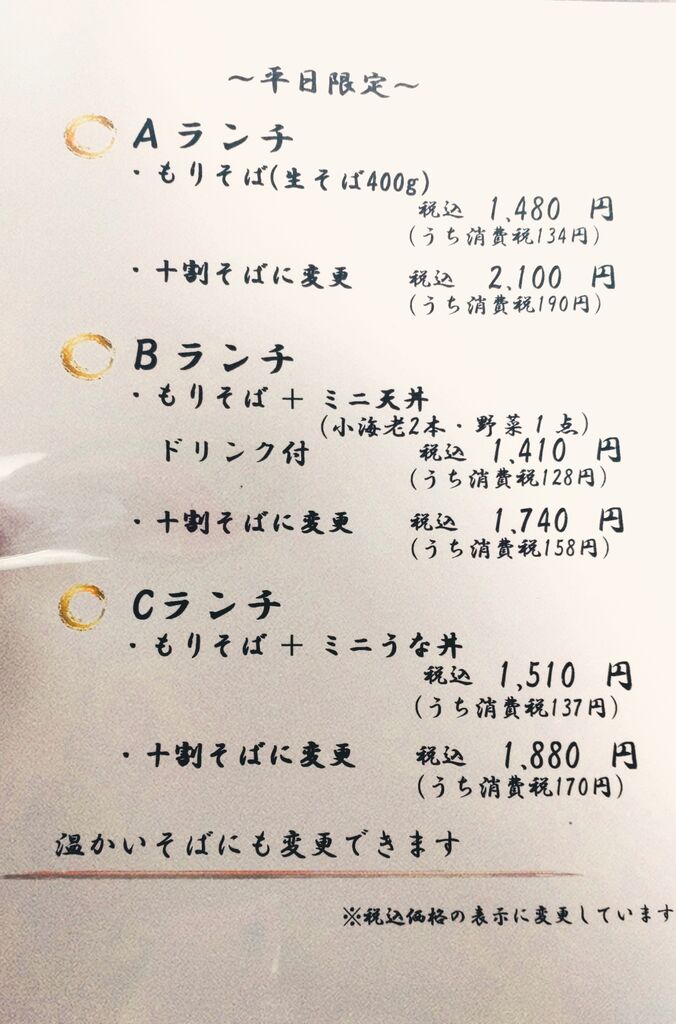 ～平日限定～
Aランチ
・もりそば(生そば400g)
税込 1,480 円
(うち消費税134円)
・十割そばに変更 税込 2,100 円
(うち消費税190円)
Bランチ
・もりそば ＋ ミニ天丼
(小海老2本・野菜1点)
ドリンク付 税込 1,410 円
(うち消費税128円)
・十割そばに変更 税込 1,740 円
(うち消費税158円)
Cランチ
・もりそば ＋ ミニうな丼
税込 1,510 円
(うち消費税137円)
・十割そばに変更 税込 1,880 円
(うち消費税170円)
温かいそばにも変更できます
※税込価格の表示に変更しています